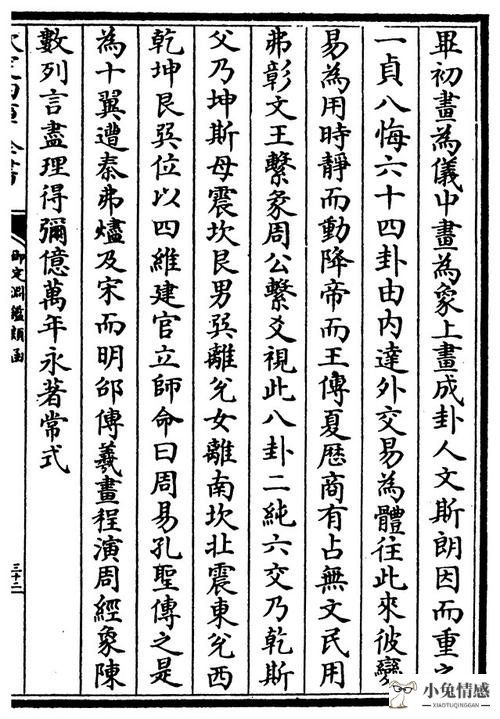 畢初畫為儀中畫為象上畫成卦人文斯朗因而重之
一貞八悔六十四卦由內達外交易為體往此來彼變
易為用時靜而動降帝而王傳夏歴商有占無文民用
弗彰文王繫彖周公繫爻視此八卦二純六交乃乾斯
父乃坤斯母震坎艮男巽離兊女離南坎北震東兊西
乾坤艮巽位以四維建官立師命曰周易孔聖傳之是
為十翼遭秦弗燼及宋而明邵傳羲畫程演周經象陳
數列言盡理得彌億萬年永著常式
御定淵鑑類函
三十二
小兔情感
XIAOTUQINGGAN